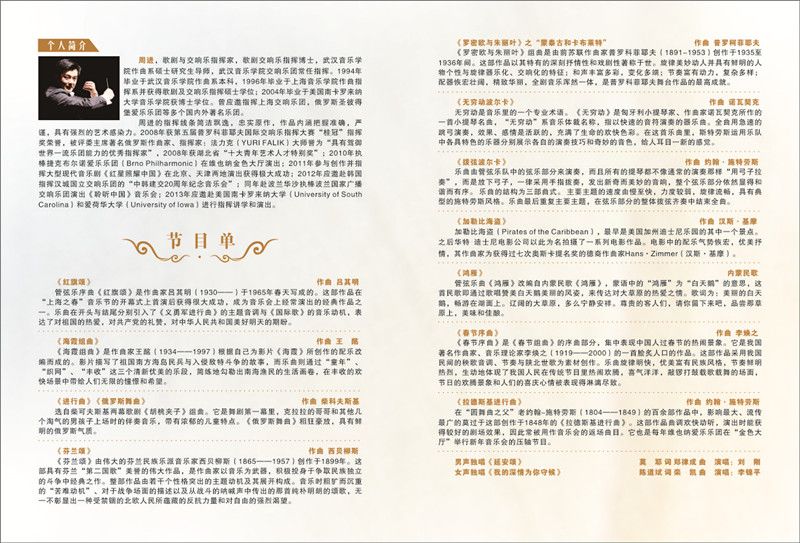 个人简介
周进，歌剧与交响乐指挥家，歌剧交响乐指挥博士，武汉音乐学
院作曲系硕士研究生导师，武汉音乐学院交响乐团常任指挥。1994年
毕业于武汉音乐学院作曲系本科，1996年毕业于上海音乐学院作曲指
挥系并获得歌剧及交响乐指挥硕士学位；2004年毕业于美国南卡罗来纳
大学音乐学院获博士学位。曾应邀指挥上海交响乐团，俄罗斯圣彼得
堡爱乐乐团等多个国内外著名乐团。
周进的指挥线条简洁飘逸，忠实原作，作品内涵把握准确，严
谨，具有强烈的艺术感染力。2008年获第五届普罗科菲耶夫国际交响乐指挥大赛“桂冠”指挥
奖荣誉，被评委主席著名俄罗斯作曲家、指挥家：法力克（YURI FALIK）大师誉为“具有驾御
世界一流乐团能力的优秀指挥家”，2008年获湖北省“十大青年艺术人才特别奖”；2010年执
棒捷克布尔诺爱乐乐团（Brno Philharmonic）在维也纳金色大厅演出；2011年参与创作并指挥
大型现代音乐剧《红星照耀中国》在北京、天津两地演出获得极大成功；2012年应邀赴韩国
指挥汉城国立交响乐团的“中韩建交20周年纪念音乐会”；同年赴波兰华沙执棒波兰国家广播
交响乐团演出《聆听中国》音乐会；2013年应邀赴美国南卡罗来纳大学（University of South
Carolina）和爱荷华大学（University of Iowa）进行指挥讲学和演出。
节目单
《红旗颂》 作曲 吕其明
管弦乐序曲《红旗颂》是作曲家吕其明（1930——）于1965年春天写成的。这部作品在
“上海之春”音乐节的开幕式上首演后获得很大成功，成为音乐会上经常演出的经典作品之
一。乐曲在开头与结尾分别引入了《义勇军进行曲》的主题音调与《国际歌》的音乐动机，表
达了对祖国的热爱，对共产党的礼赞，对中华人民共和国美好明天的期盼。
《海霞组曲》 作曲 王酩
《海霞组曲》是作曲家王酩（1934——1997）根据自己为影片《海霞》所创作的配乐改
编而成的。影片描写了祖国南方海岛民兵与入侵敌特斗争的故事，而乐曲则通过“童年”、
“织网”、“丰收”这三个清新优美的乐段，简炼地勾勒出南海渔民的生活画卷，在丰收的欢
快场景中带给人们无限的憧憬和希望。
《进行曲》《俄罗斯舞曲》 作曲 柴科夫斯基
选自柴可夫斯基两幕歌剧《胡桃夹子》组曲。它是舞剧第一幕里，克拉拉的哥哥和其他几
个淘气的男孩子上场时的伴奏音乐，带有浓郁的儿童特点。《俄罗斯舞曲》粗狂豪放，具有鲜
明的俄罗斯气质。
《芬兰颂》 作曲 西贝柳斯
《芬兰颂》由伟大的芬兰民族乐派音乐家西贝柳斯（1865——1957）创作于1899年。这
部具有芬兰“第二国歌”美誉的伟大作品，是作曲家以音乐为武器，积极投身于争取民族独立
的斗争中经典之作。整部作品由若干个性格突出的主题动机及其展开构成。音乐时粗犷而沉重
的“苦难动机”、对于战争场面的描述以及从战斗的呐喊声中传出的那首纯朴明朗的颂歌，无
一不彰显出一种受禁锢的北欧人民所蕴藏的反抗力量和对自由的强烈渴望。
《罗密欧与朱丽叶》之“蒙泰古和卡布莱特” 作曲 普罗科菲耶夫
《罗密欧与朱丽叶》组曲是由前苏联作曲家普罗科菲耶夫（1891-1953）创作于1935至
1936年间。这部作品以其特有的深刻抒情性和戏剧性著称于世。旋律美妙动人并具有鲜明的人
物个性与旋律器乐化、交响化的特征；和声丰富多彩，变化多端；节奏富有动力，复杂多样；
配器恢宏壮阔，精致华丽，全剧音乐浑然一体，是普罗科菲耶夫舞台作品的最高成就。
《无穷动波尔卡》 作曲 诺瓦契克
无穷动是音乐里的一个专业术语。《无穷动》是匈牙利小提琴家、作曲家诺瓦契克所作的
一首小提琴名曲，“无穷动”系音乐体裁名称，指以快速的音符演奏的器乐曲。全曲用急速的
跳弓演奏，效果、感情是活跃的，充满了生命的欢快色彩。在这首乐曲里，斯特劳斯运用乐队
中各具特色的乐器分别展示各自的演奏技巧和奇妙的音色，给人耳目一新的感觉。
《拨弦波尔卡》 作曲 约翰·施特劳斯
乐曲由管弦乐队中的弦乐部分来演奏，而且所有的提琴都不像通常的演奏那样“用弓子拉
奏”，而是放下弓子，一律采用手指拨奏，发出新奇而美妙的音响，整个弦乐部分依然显得和
谐而有序。乐曲的结构为三部曲式。主要主题的速度由慢至快，力度较弱，旋律流畅，具有典
型的施特劳斯风格。乐曲最后重复主要主题，在弦乐部分的整体拨弦齐奏中结束全曲。
《加勒比海盗》 作曲 汉斯·基摩
加勒比海盗（Pirates of the Caribbean），最早是美国加州迪士尼乐园的其中一个景点。
之后华特 迪士尼电影公司以此为名拍摄了一系列电影作品。电影中的配乐气势恢宏，优美抒
情，其作曲家为获得过七次奥斯卡提名奖的德裔作曲家Hans·Zimmer（汉斯·基摩）。
《鸿雁》 内蒙民歌
管弦乐曲《鸿雁》改编自内蒙民歌《鸿雁》，蒙语中的“鸿雁”为“白天鹅”的意思，这
首民歌即通过歌唱赞美白天鹅美丽的风姿，来传达对大草原的热爱之情。歌词为：美丽的白天
鹅，畅游在湖面上。辽阔的大草原，多么宁静安祥。尊贵的客人们，请你留下来吧，品尝那草
原上，美味和佳酿。
《春节序曲》 作曲 李焕之
《春节序曲》是《春节组曲》的序曲部分，集中表现中国人过春节的热闹景象。它是我国
著名作曲家、音乐理论家李焕之（1919——2000）的一首脍炙人口的作品。这部作品采用我国
民间的秧歌音调、节奏与陕北世歌为素材创作。乐曲旋律明快，优美富有民族风格，节奏鲜明
热烈，生动地体现了我国人民在传统节日里热闹欢腾，喜气洋洋，敲锣打鼓载歌载舞的场面，
节日的欢腾景象和人们的喜庆心情被表现得淋漓尽致。
《拉德斯基进行曲》 作曲 约翰·施特劳斯
在“圆舞曲之父”老约翰-施特劳斯（1804——1849）的百余部作品中，影响最大、流传
最广的莫过于这部创作于1848年的《拉德斯基进行曲》。这部作品曲调欢快动听，演出时能获
得较好的剧场效果，因此常被用作音乐会的返场曲目。它也是每年维也纳爱乐乐团在“金色大
厅”举行新年音乐会的压轴节目。
男声独唱《延安颂》 莫耶词 郑律成曲 演唱：刘刚
女声独唱《我的深情为你守候》 陈道斌词 栾凯曲 演唱：李锦平